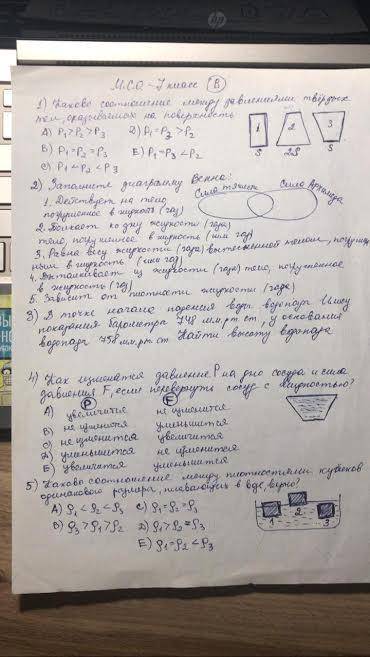 М.С.О - 7 класс (В)
1) Каково соотношение между давлениями твёрдых
тел, оказываемых на поверхность
А) P₁>P₂>P₃ Д) P₁=P₃>P₂
В) P₁=P₂=P₃ Е) P₁=P₃<P₂
С) P₁<P₂<P₃
1 2 3
S 2S S
2) Заполните диаграмму Венна:
Сила тяжести Сила Архимеда
1. Действует на тело,
погруженное в жидкость (газ)
2. Толкает ко дну жидкости (газа)
тело, погруженное в жидкость (или газ)
3. Равна весу жидкости (газа) вытесненной телом, погружен
ным в жидкость (или газ)
4. Выталкивает из жидкости (газа) тело, погруженное
в жидкость (газ)
5. Зависит от плотности жидкости (газа)
3) В точке начала падения воды водопада
показания барометра 748 мм.рт.ст, у основания
водопада 756 мм.рт.ст Найти высоту водопада
4) Как изменятся давление P на дно сосуда и сила
давления F, если перевернуть сосуд с жидкостью?
P F
А) увеличится не изменится
В) не изменится уменьшится
С) не изменится увеличится
Д) уменьшится не изменится
Е) увеличится уменьшится
5) Каково соотношение между плотностями кубиков
одинакового размера, плавающих в воде, верно?
А) ρ₁<ρ₂<ρ₃ С) ρ₁=ρ₂=ρ₃
В) ρ₃>ρ₁>ρ₂ Д) ρ₁>ρ₂=ρ₃
Е) ρ₁=ρ₂<ρ₃
1 2 3